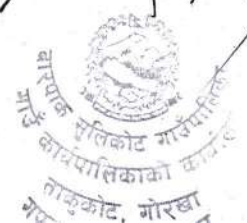 बारपाक सुलिकोट गाउँपालिका
गाउँ कार्यपालिकाको कार्यालय
ताकुकोट, गोरखा